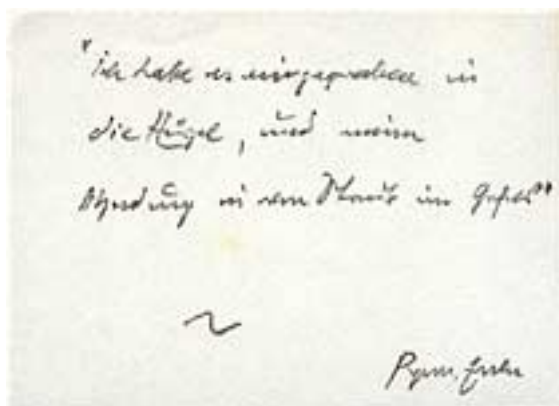 "ich habe es eingegraben in
die Hügel, und meine
Ahndung in den Staub im Gefels"
Pym.